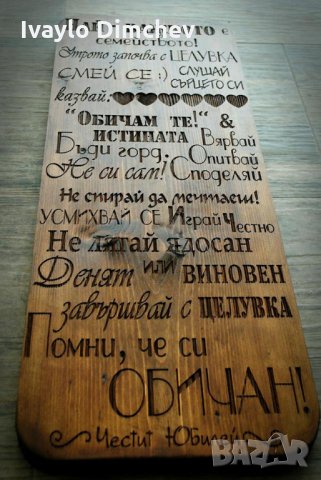 Ivaylo Dimchev
е
семейството!
Утрото започва с ЦЕЛУВКА
СМЕЙ СЕ :) СЛУШАЙ
СЪРЦЕТО СИ
казвай:
"ОБИЧАМ ТЕ!" &
ИСТИНАТА Вярвай
Бъди горд. Опитвай
Не си сам! Споделяй
Не спирай да мечтаеш!
УСМИХВАЙ СЕ Играй Честно
Не лягай ядосан
или ВИНОВЕН
Денят
завършвай с ЦЕЛУВКА
Помни, че си
ОБИЧАН!
Честит Юбилей
BAZAR